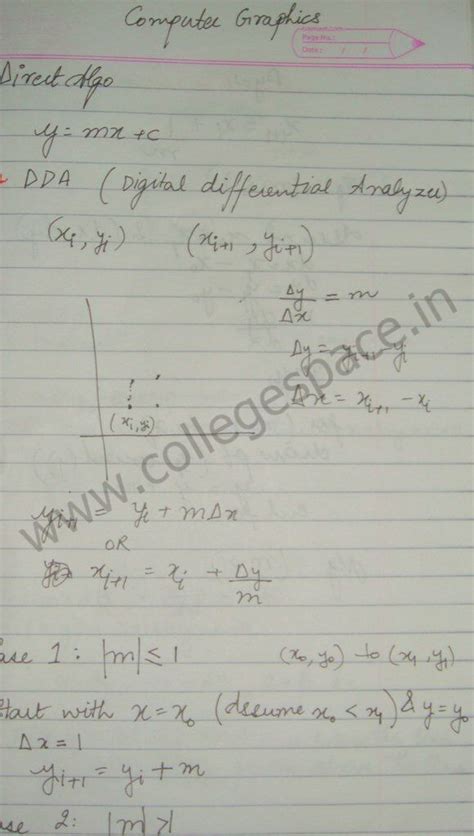 Computer Graphics
Page No.:
Date: / /
Direct Algo
y = mx + c
DDA (Digital differential Analyzer)
(xᵢ, yᵢ) (xᵢ₊₁, yᵢ₊₁)
Δy/Δx = m
Δy = yᵢ₊₁ - yᵢ
Δx = xᵢ₊₁ - xᵢ
(xᵢ, yᵢ)
yᵢ₊₁ = yᵢ + mΔx
OR
xᵢ₊₁ = xᵢ + Δy/m
ase 1: |m| ≤ 1 (x₀, y₀) to (x₁, y₁)
tart with x = x₀ (assume x₀ < x₁) & y = y₀
Δx = 1
yᵢ₊₁ = yᵢ + m
ase 2: |m| > 1
www.collegespace.in